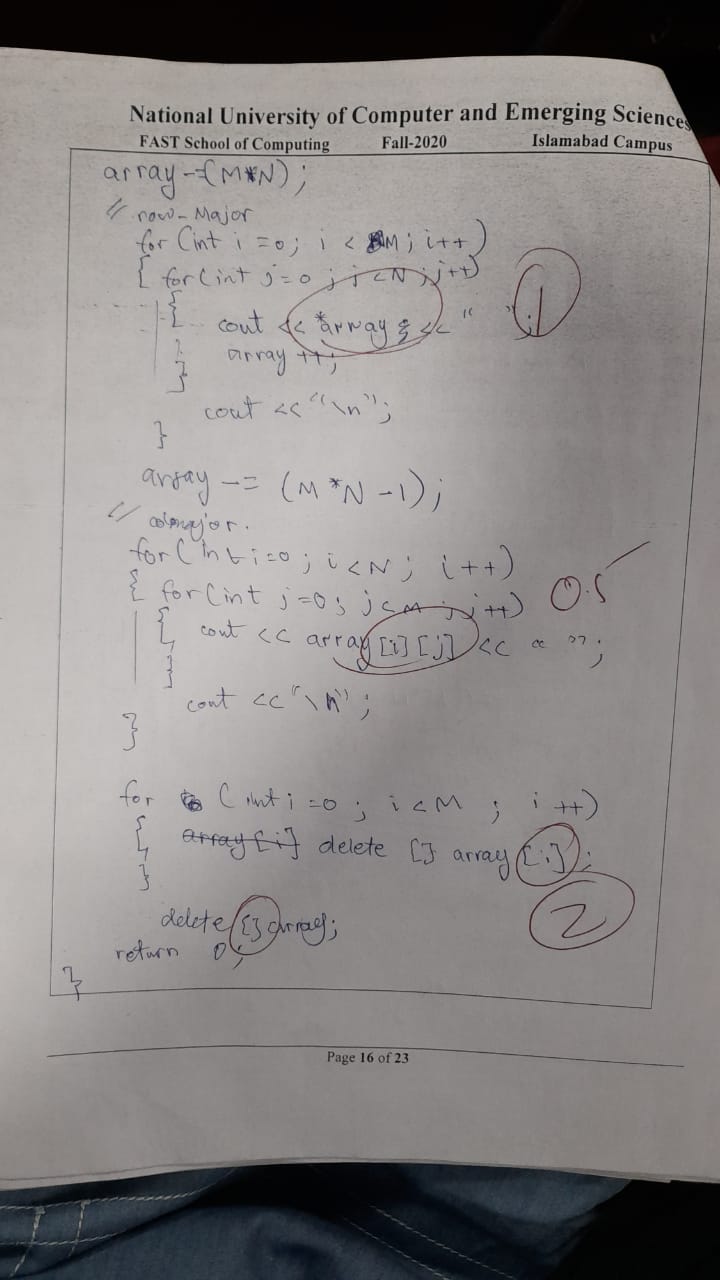 National University of Computer and Emerging Sciences
FAST School of Computing Fall-2020 Islamabad Campus
array-=(M*N);
// row-Major
for (int i=0; i < M; i++)
{ for(int j=0; j<N; j++)
{ cout << *array << " ";
1
array ++;
}
cout <<"\n";
}
array -= (M*N-1);
// colmajor.
for(int i=0; i<N; i++)
{ for(int j=0; j<M; j++)
0.5
{ cout << array[i][j] << " ";
}
cout <<"\n";
}
for (int i=0; i<M; i++)
{ array[i] delete [] array[i];
}
2
delete [] array;
return 0;
}
Page 16 of 23